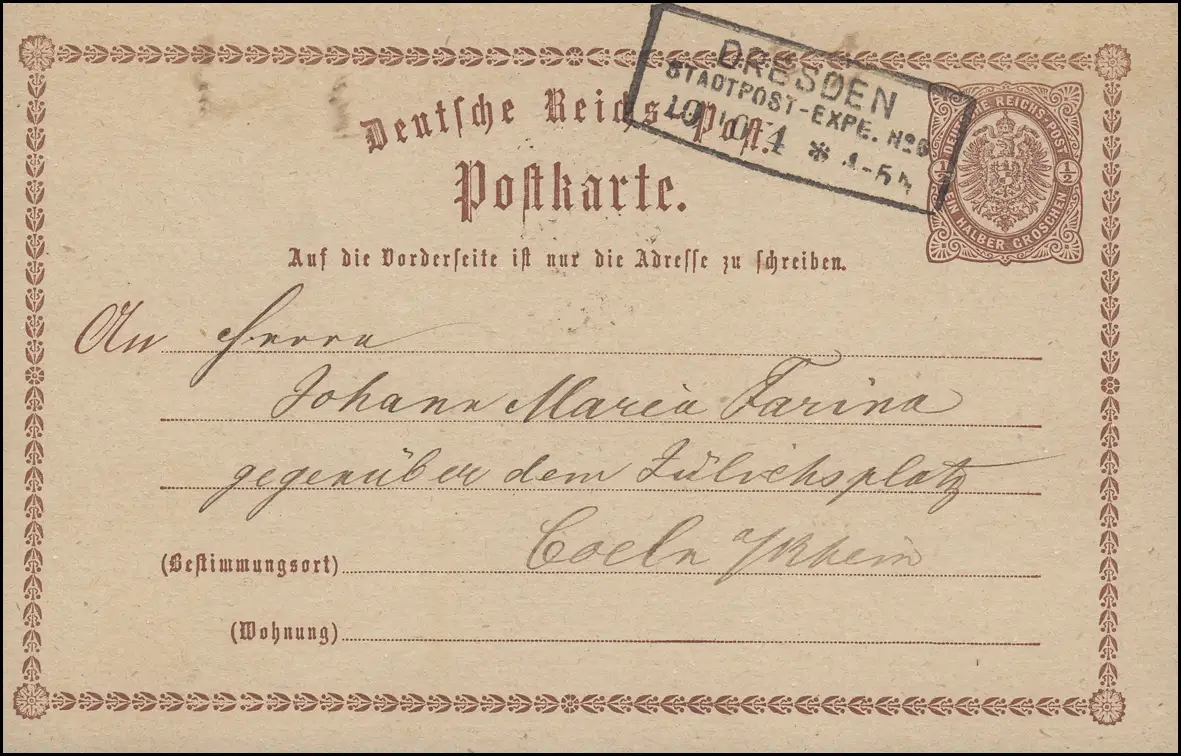 DRESDEN
STADTPOST-EXPE. No 6
Deutsche Reichs-Post.
Postkarte.
REICHS-POST
1/2 1/2
HALBER GROSCHEN
Auf die Vorderseite ist nur die Adresse zu schreiben.
An Herrn
Johann Maria Farina
gegenüber dem Jülichsplatz
(Bestimmungsort) Coeln a/Rhein
(Wohnung)